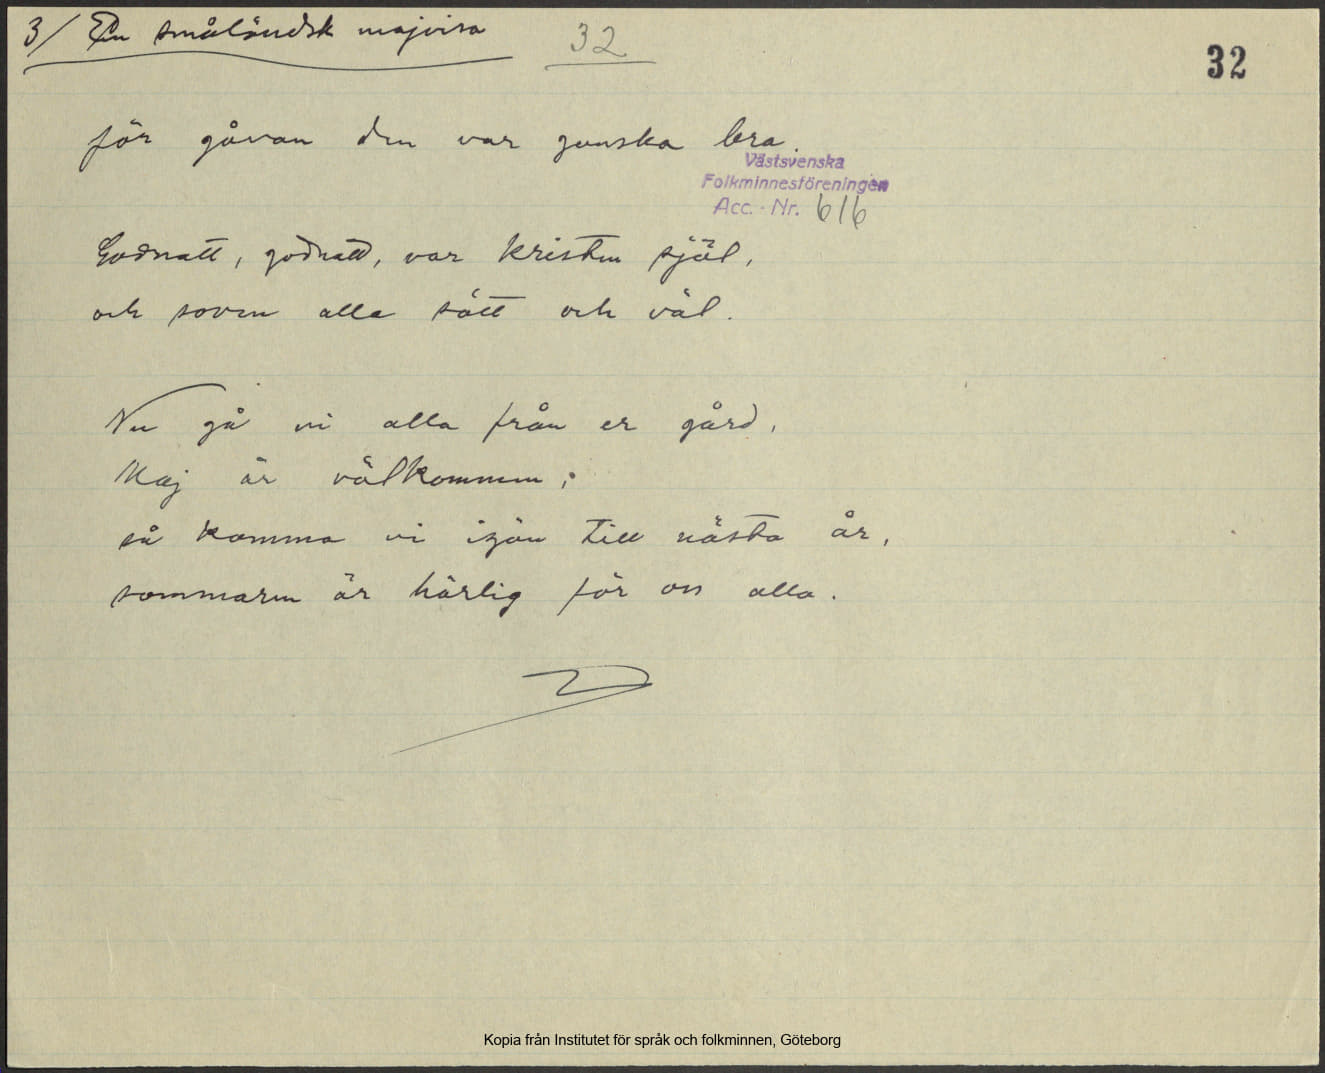 3/ En småländsk majvisa
32
32
för gåvan den var ganska bra.
Västsvenska
Folkminnesföreningen
Acc. - Nr. 616
Godnatt, godnatt, var kristen själ,
och soven alla sött och väl.
Nu gå vi alla från er gård,
Maj är välkommen;
så komma vi igän till nästa år,
sommaren är härlig för oss alla.
Kopia från Institutet för språk och folkminnen, Göteborg